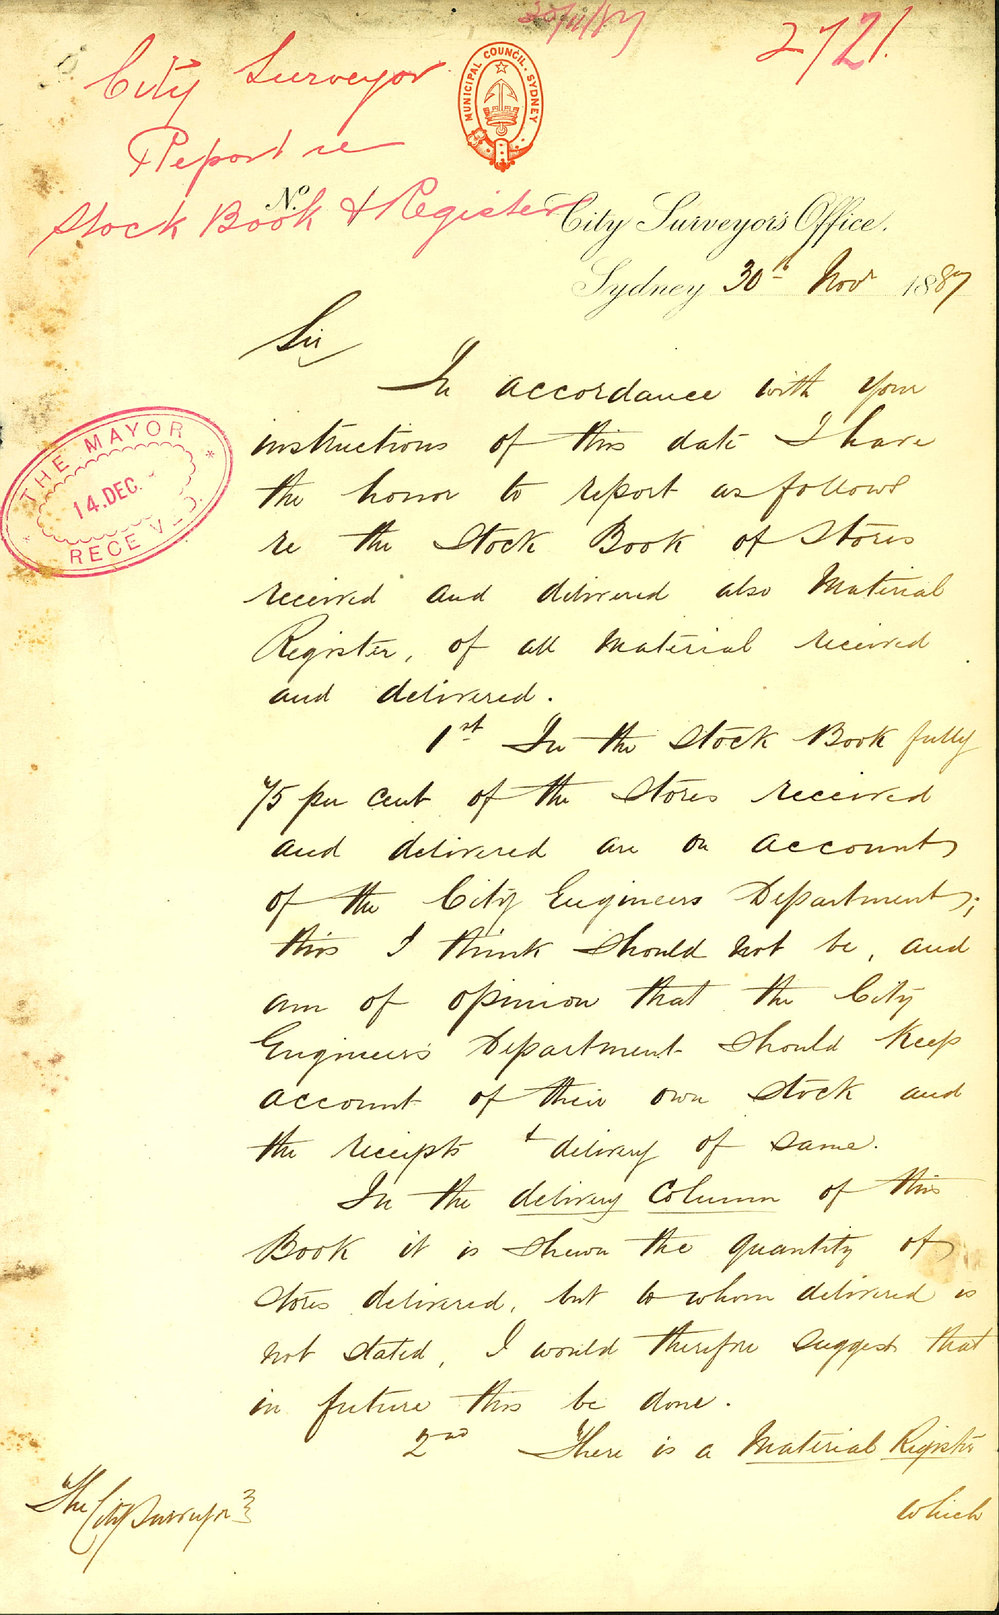 30/11/87
2721.
City Surveyor
Report re
Stock Book & Register
MUNICIPAL COUNCIL. SYDNEY
No.
City Surveyor's Office.
Sydney 30th Nov 1887
THE MAYOR
14. DEC.
RECEIV
Sir
In accordance with your
instructions of this date I have
the honor to report as follows
re the Stock Book of Stores
received and delivered also Material
Register, of all Material received
and delivered.
1st In the Stock Book fully
75 per cent of the Stores received
and delivered are on accounts
of the City Engineers Department;
this I think should not be, and
am of opinion that the City
Engineer's Department should keep
account of their own Stock and
the receipts & delivery of same.
In the delivery Column of this
Book it is shewn the quantity of
Stores delivered, but to whom delivered is
not stated, I would therefore suggest that
in future this be done.
2nd There is a Material Register
which
The City Surveyor